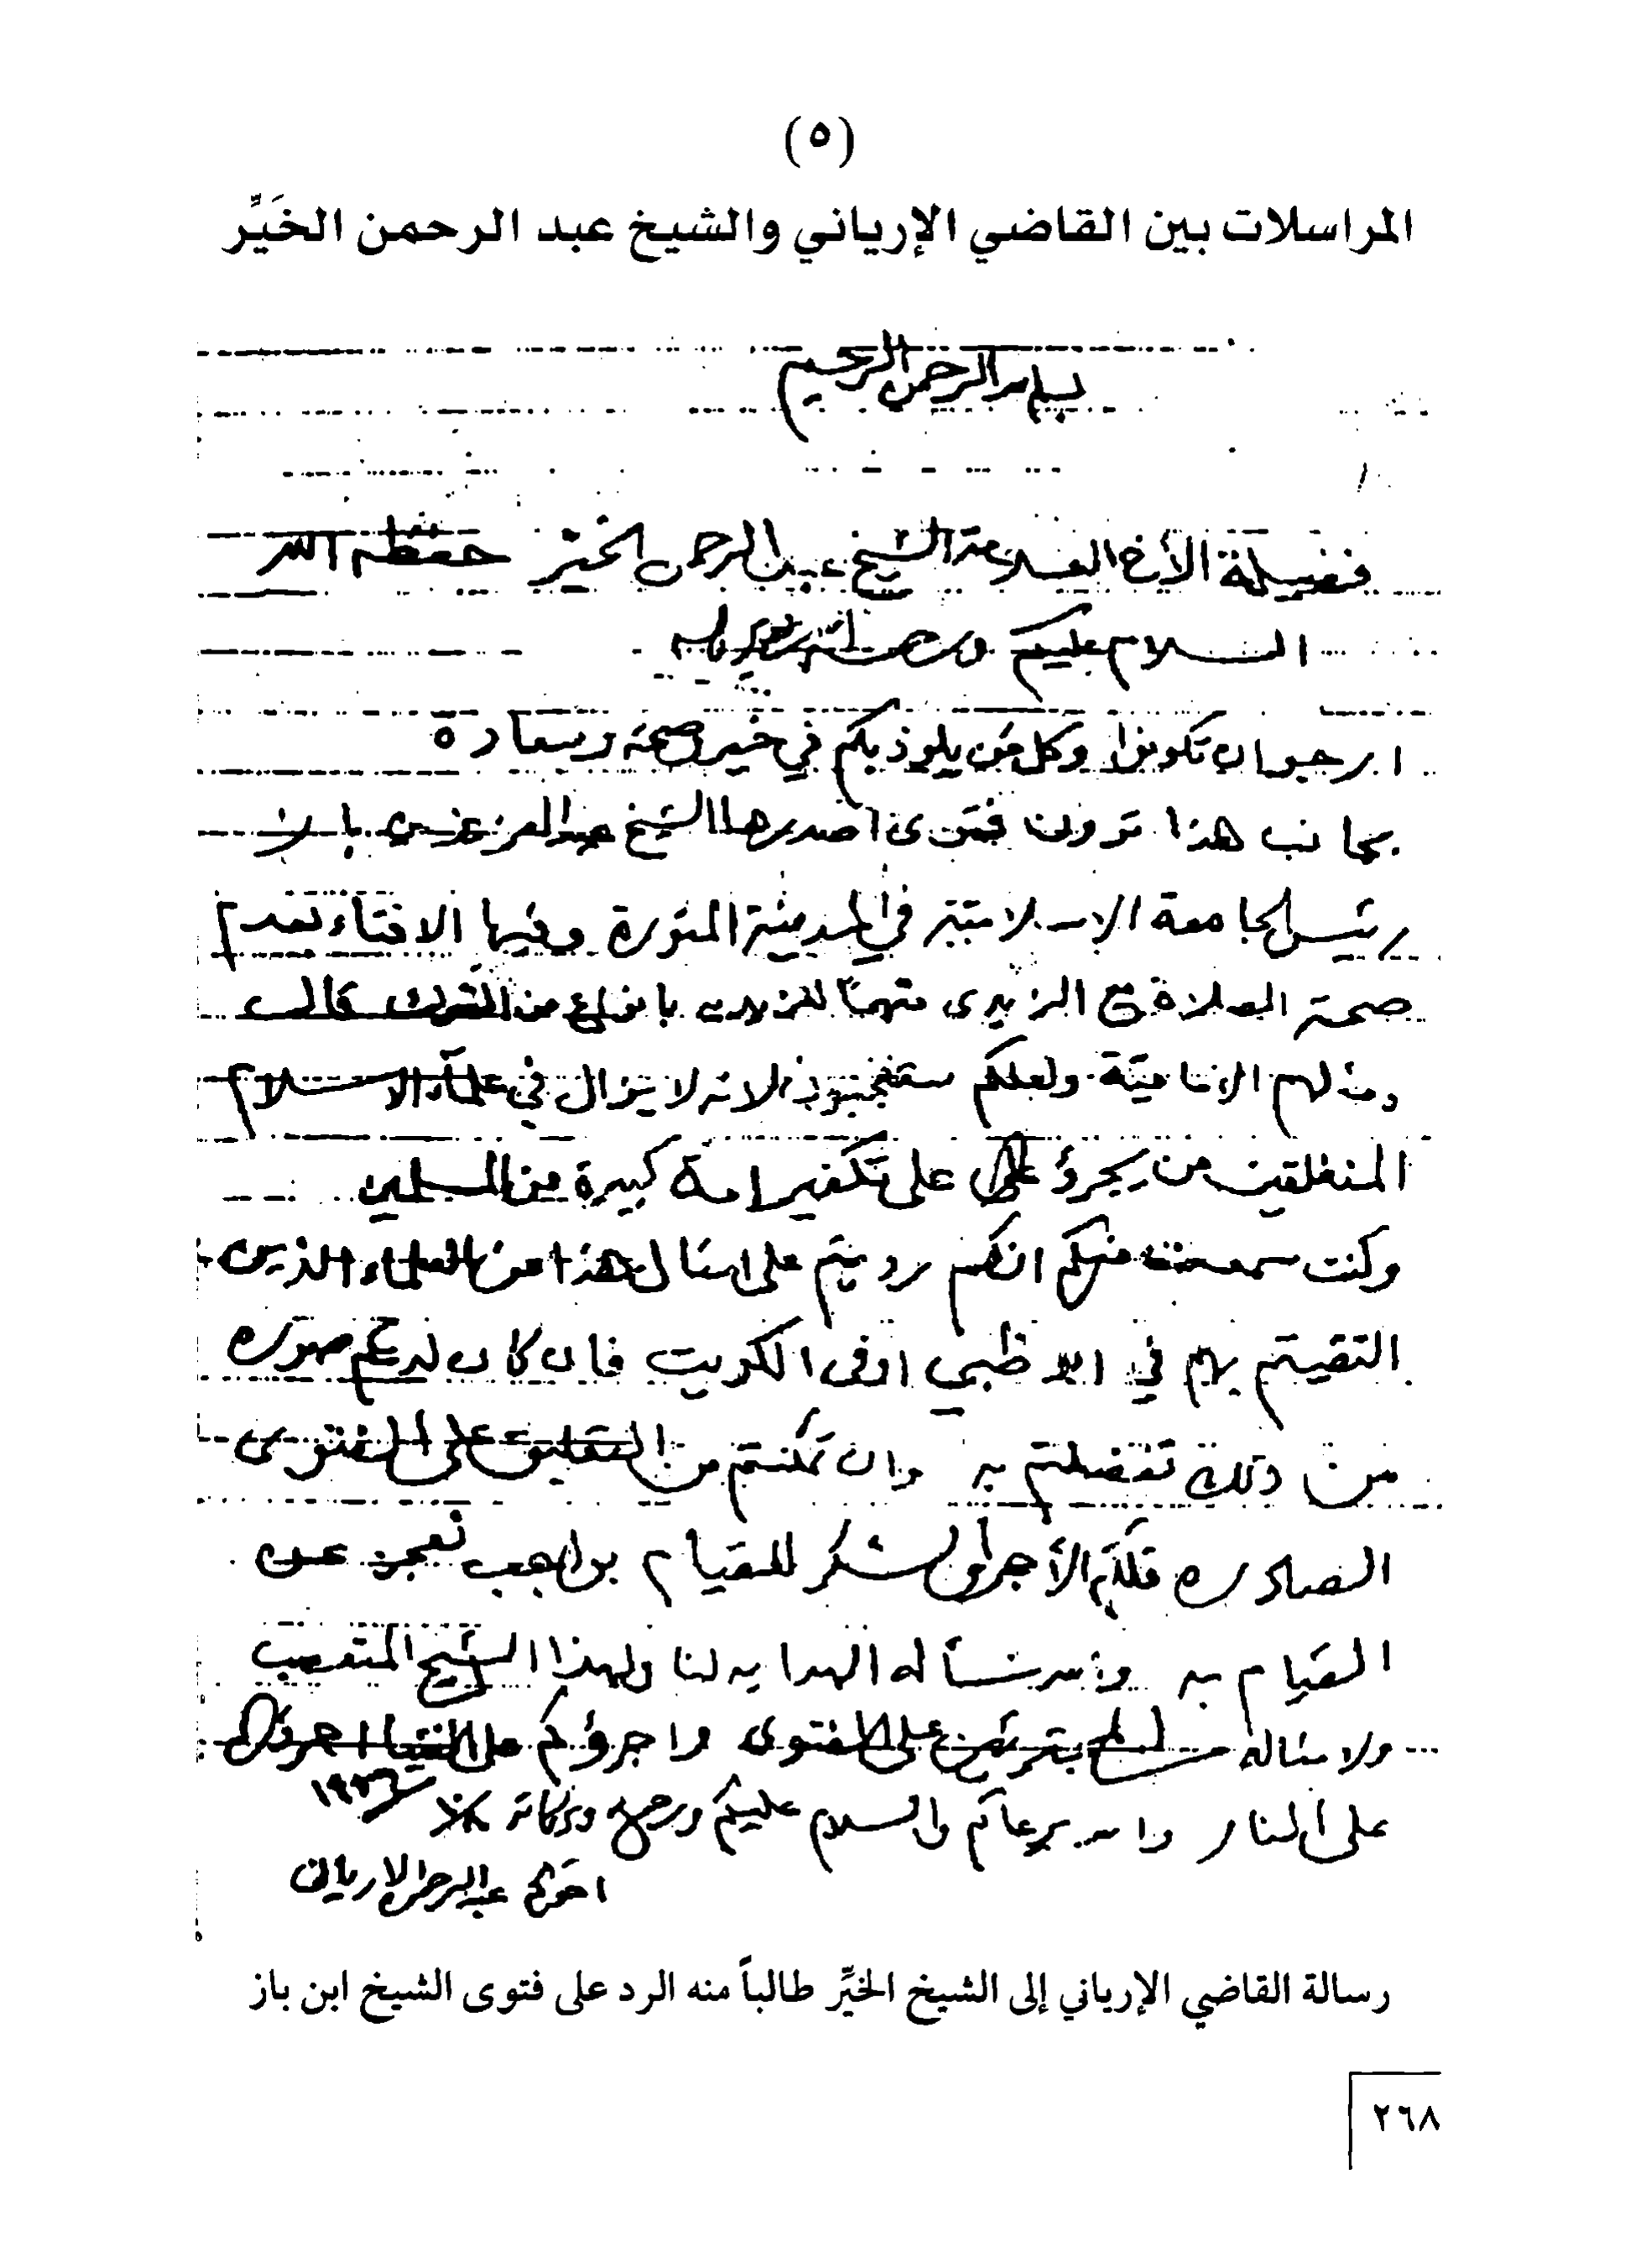 (٥)
المراسلات بين القاضي الإرياني والشيخ عبد الرحمن الخَيِّر
بسم الله الرحمن الرحيم
فضيلة الأخ العلامة الشيخ عبد الرحمن الخيّر حفظه الله
السلام عليكم ورحمة الله وبركاته
ارجو ان تكونوا وكل من يلوذ بكم في خير وصحة وسعادة
بجانب هذا ترون فتوى اصدرها الشيخ عبد العزيز بن باز
رئيس الجامعة الإسلامية في المدينة المنورة وفيها الافتاء بعدم
صحة الصلاة مع الزيدي متهماً للزيدية بانواع من الشرك قال
ومثلهم الإمامية ولعلكم ستعجبون لانه لا يزال في علماء الاسلام
المنغلقين من يجرؤ على تكفير امة كبيرة من المسلمين
وكنت سمعت منكم انكم رديتم على امثال هذا من العلماء الذين
التقيتم بهم في ابو ظبي او في الكويت فان كان لديكم صوره
من ذلك تفضلتم به وان تمكنتم من التعليق على الفتوى
الصادره فلكم الأجر والشكر للقيام بواجب نعجز عن
القيام به والله نسأله الهدايه لنا ولهذا الشيخ المتعصب
ولامثاله على الفتوى واجرؤكم على الفتيا اجرؤكم
على النار والله يرعاكم والسلام عليكم ورحمة وبركاته
اخوكم عبد الرحمن الارياني
رسالة القاضي الإرياني إلى الشيخ الخيِّر طالباً منه الرد على فتوى الشيخ ابن باز
٢٦٨